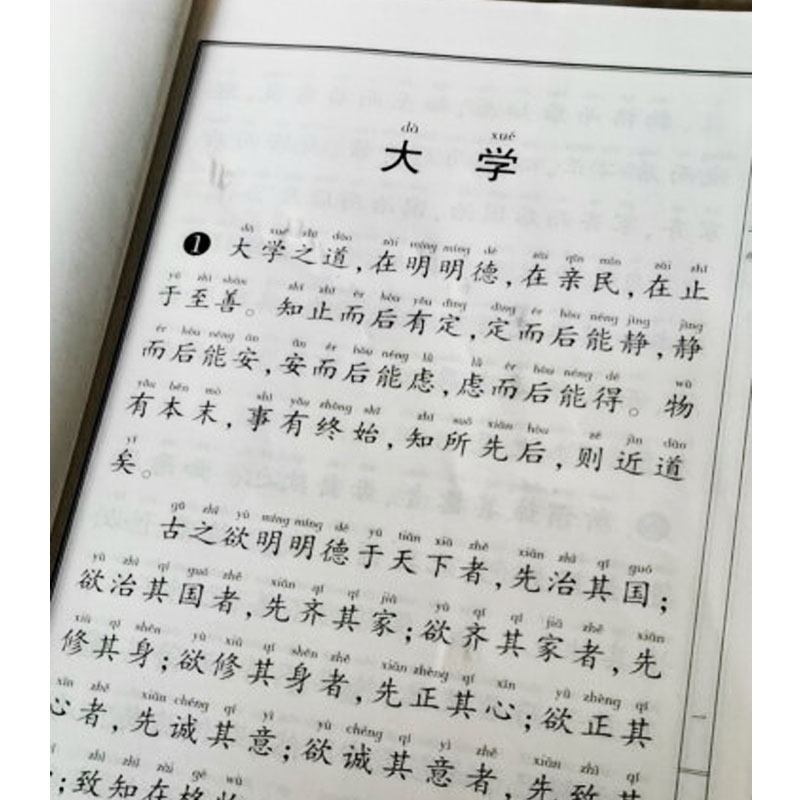 dà xué
大学
❶ 大学之道，在明明德，在亲民，在止
于至善。知止而后有定，定而后能静，静
而后能安，安而后能虑，虑而后能得。物
有本末，事有终始，知所先后，则近道
矣。
古之欲明明德于天下者，先治其国；
欲治其国者，先齐其家；欲齐其家者，先
修其身；欲修其身者，先正其心；欲正其
心者，先诚其意；欲诚其意者，先致其
；致知在格物